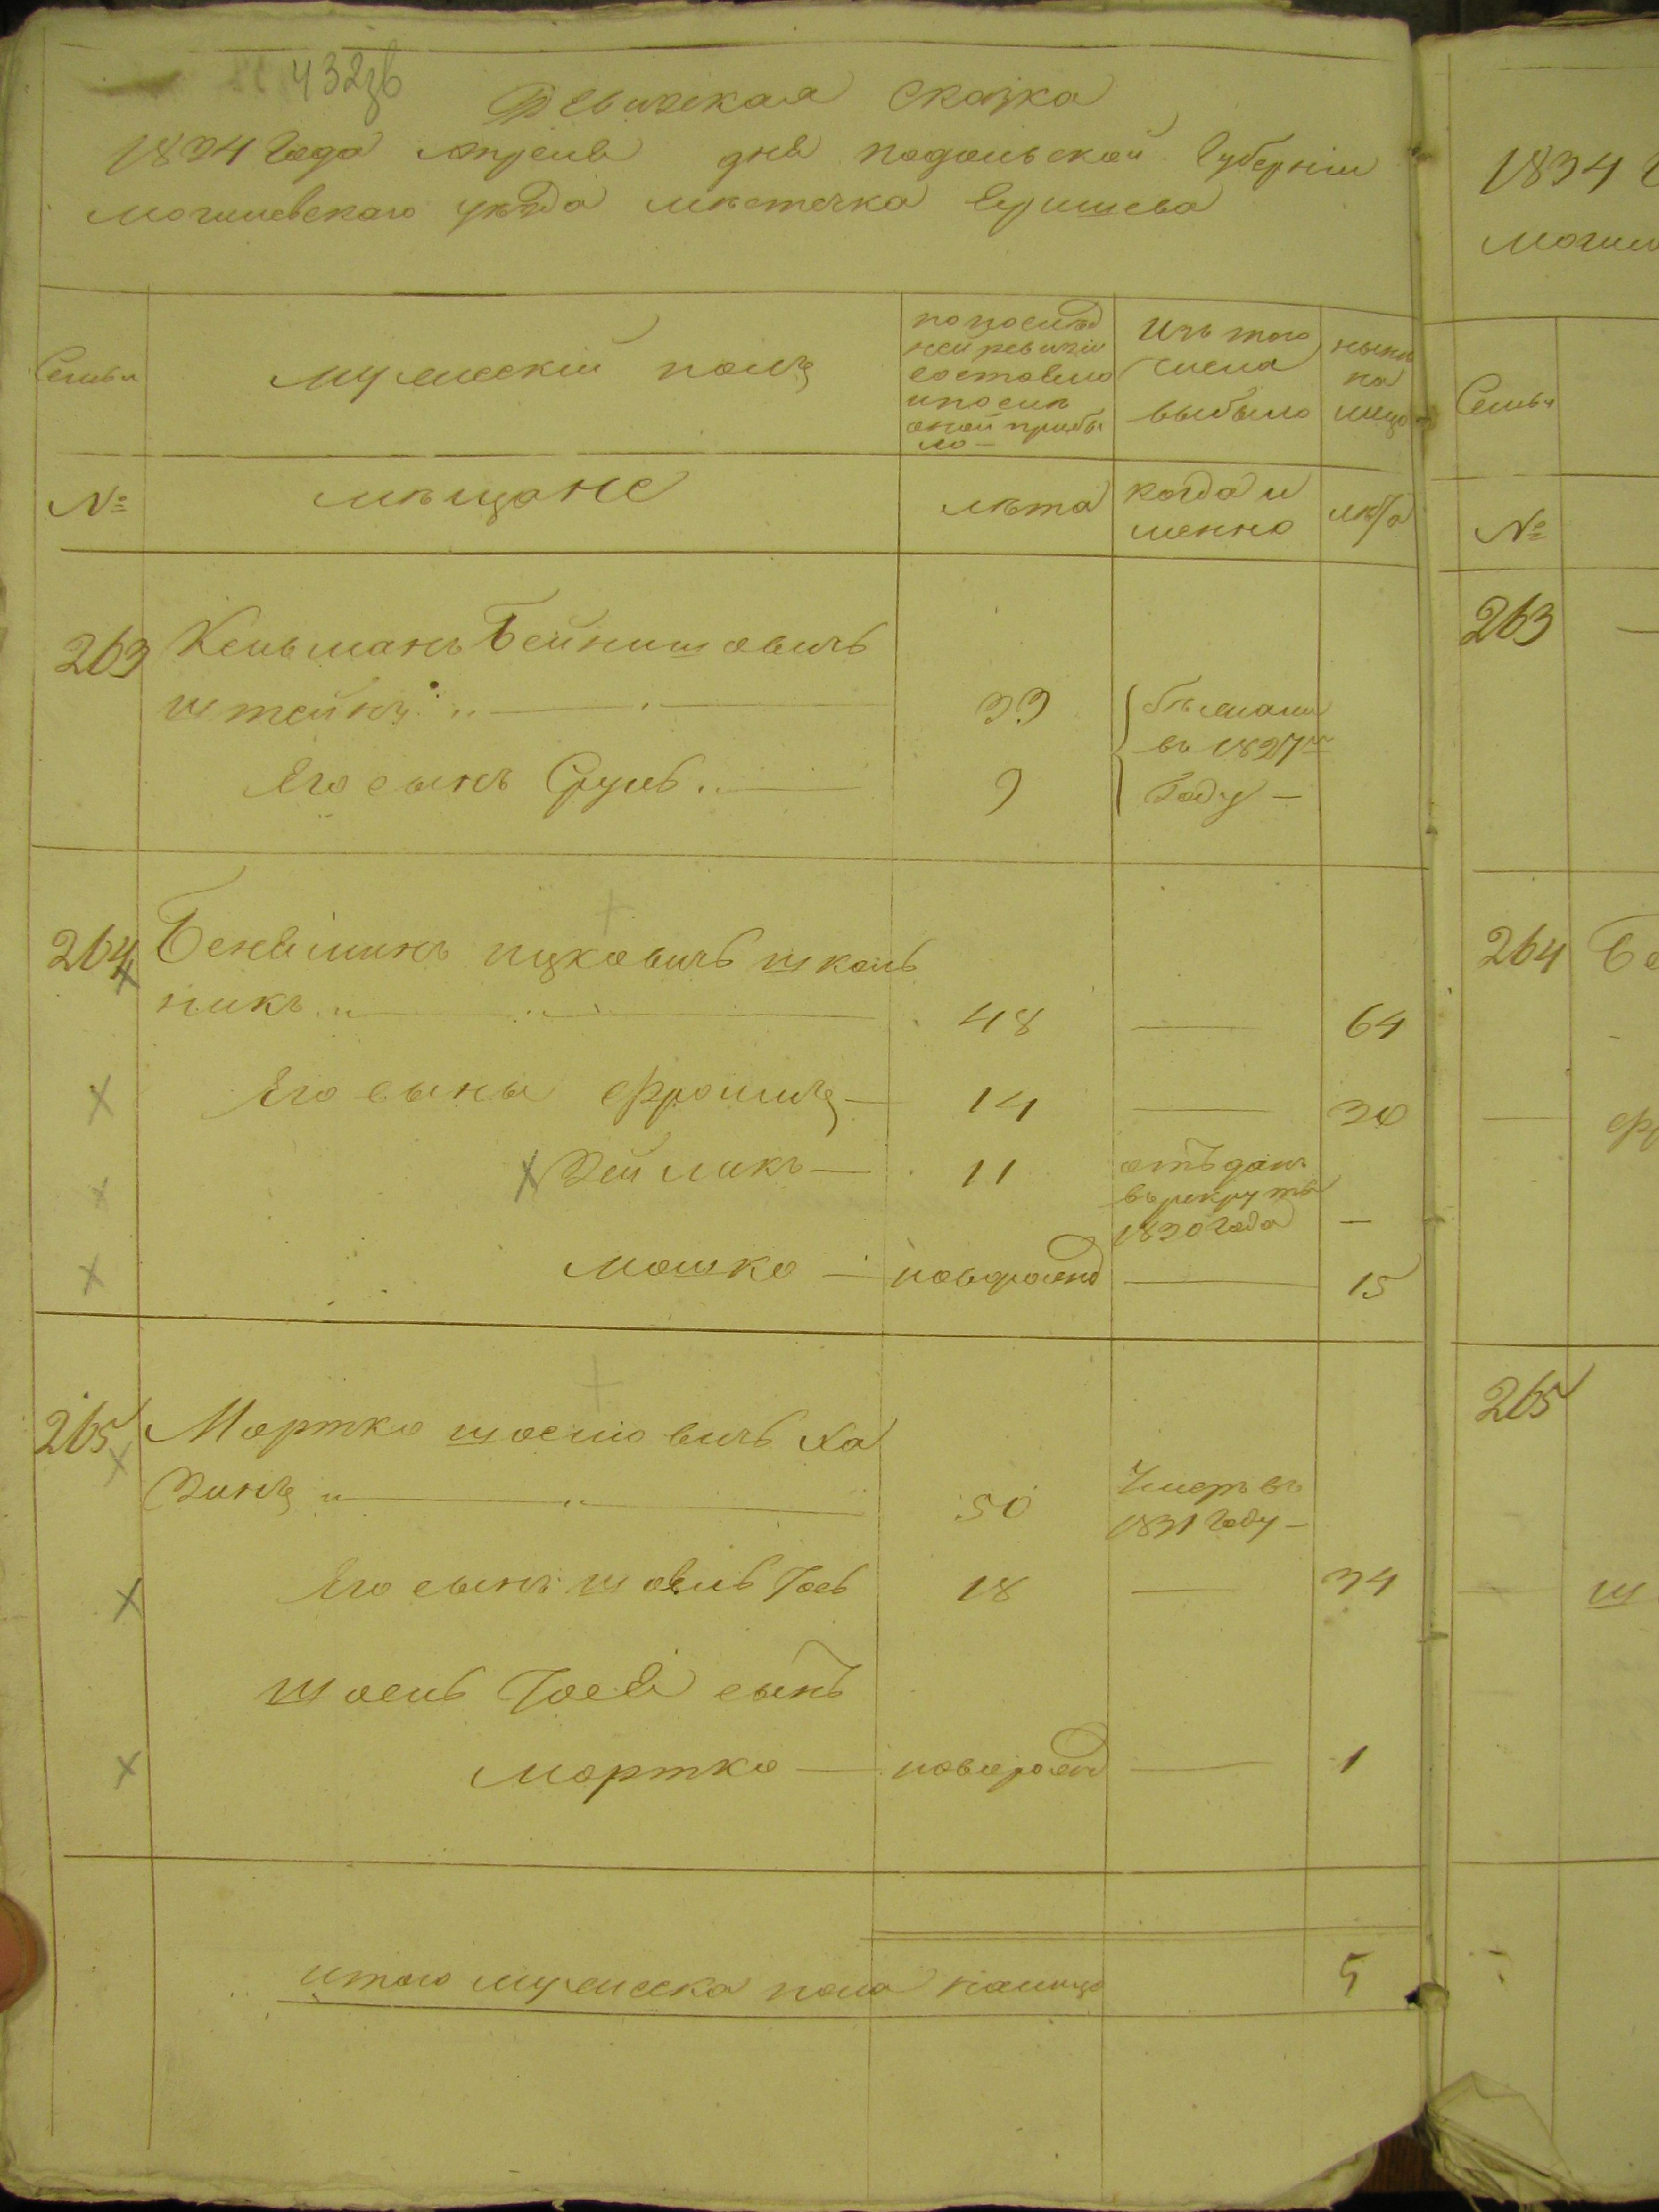 432зв
Ревизская Сказка
1834 Года апреля дня подольской Губернии
могилевского уѣзда мѣстечка Ярышева
Семьи
мужескій полъ
попослѣд
ней ревизіи
состояло
ипослѣ
оной прибы
ло —
Изъ того
числа
выбыло
нынѣ
на
лицо
№
мѣщане
лѣта
когда и
менно
лѣта
263
Кельманъ Бейнишовичъ
штейнъ
33
бѣжали
въ 1827м
Году —
Его сынъ Сруль
9
264
Беніминъ ицковичъ школь
никъ
48
—
64
Его сыны Фроимъ —
14
—
30
Зейликъ —
11
отъданъ
въ рекруты
1830 года
—
мошко —
новорожд
—
15
265
Мортко шослiовичъ Ха
зинъ
50
Умеръ въ
1831 Году —
Его сынъ
18
—
34
сынъ
мортко —
новорожд
—
1
итого мужеска пола налицо
5
1834
могил
Семьи
№
263
264
265